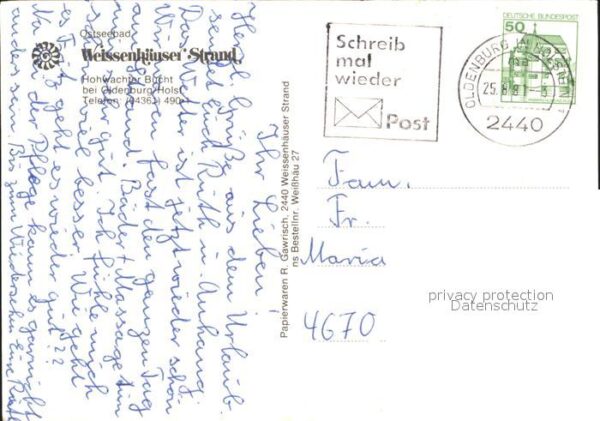 Ostseebad
Weissenhäuser Strand
Hohwachter Bucht
bei Oldenburg/Holst
Telefon: (04361) 490
Ihr Lieben!
Herzl. Grüße aus dem Urlaub
sendet Euch Ruth u. Anhang
Das Wetter ist jetzt wieder schön
wir sind fast den ganzen Tag
Bäder + Massage tun
gut. Ich fühle mich
viel besser. Wie geht
es geht es wieder gut??
Na bei der Pflege kann es garnicht
anders sein. Bis zum Wiedersehn Eure Ruth
Papierwaren R. Gawrisch, 2440 Weissenhäuser Strand
ns Bestellnr. Weißhäu 27
Schreib
mal
wieder
Post
OLDENBURG IN HOLSTEIN
25.8.81
2440
DEUTSCHE BUNDESPOST
50
Fam.
Fr.
Maria
4670
privacy protection
Datenschutz